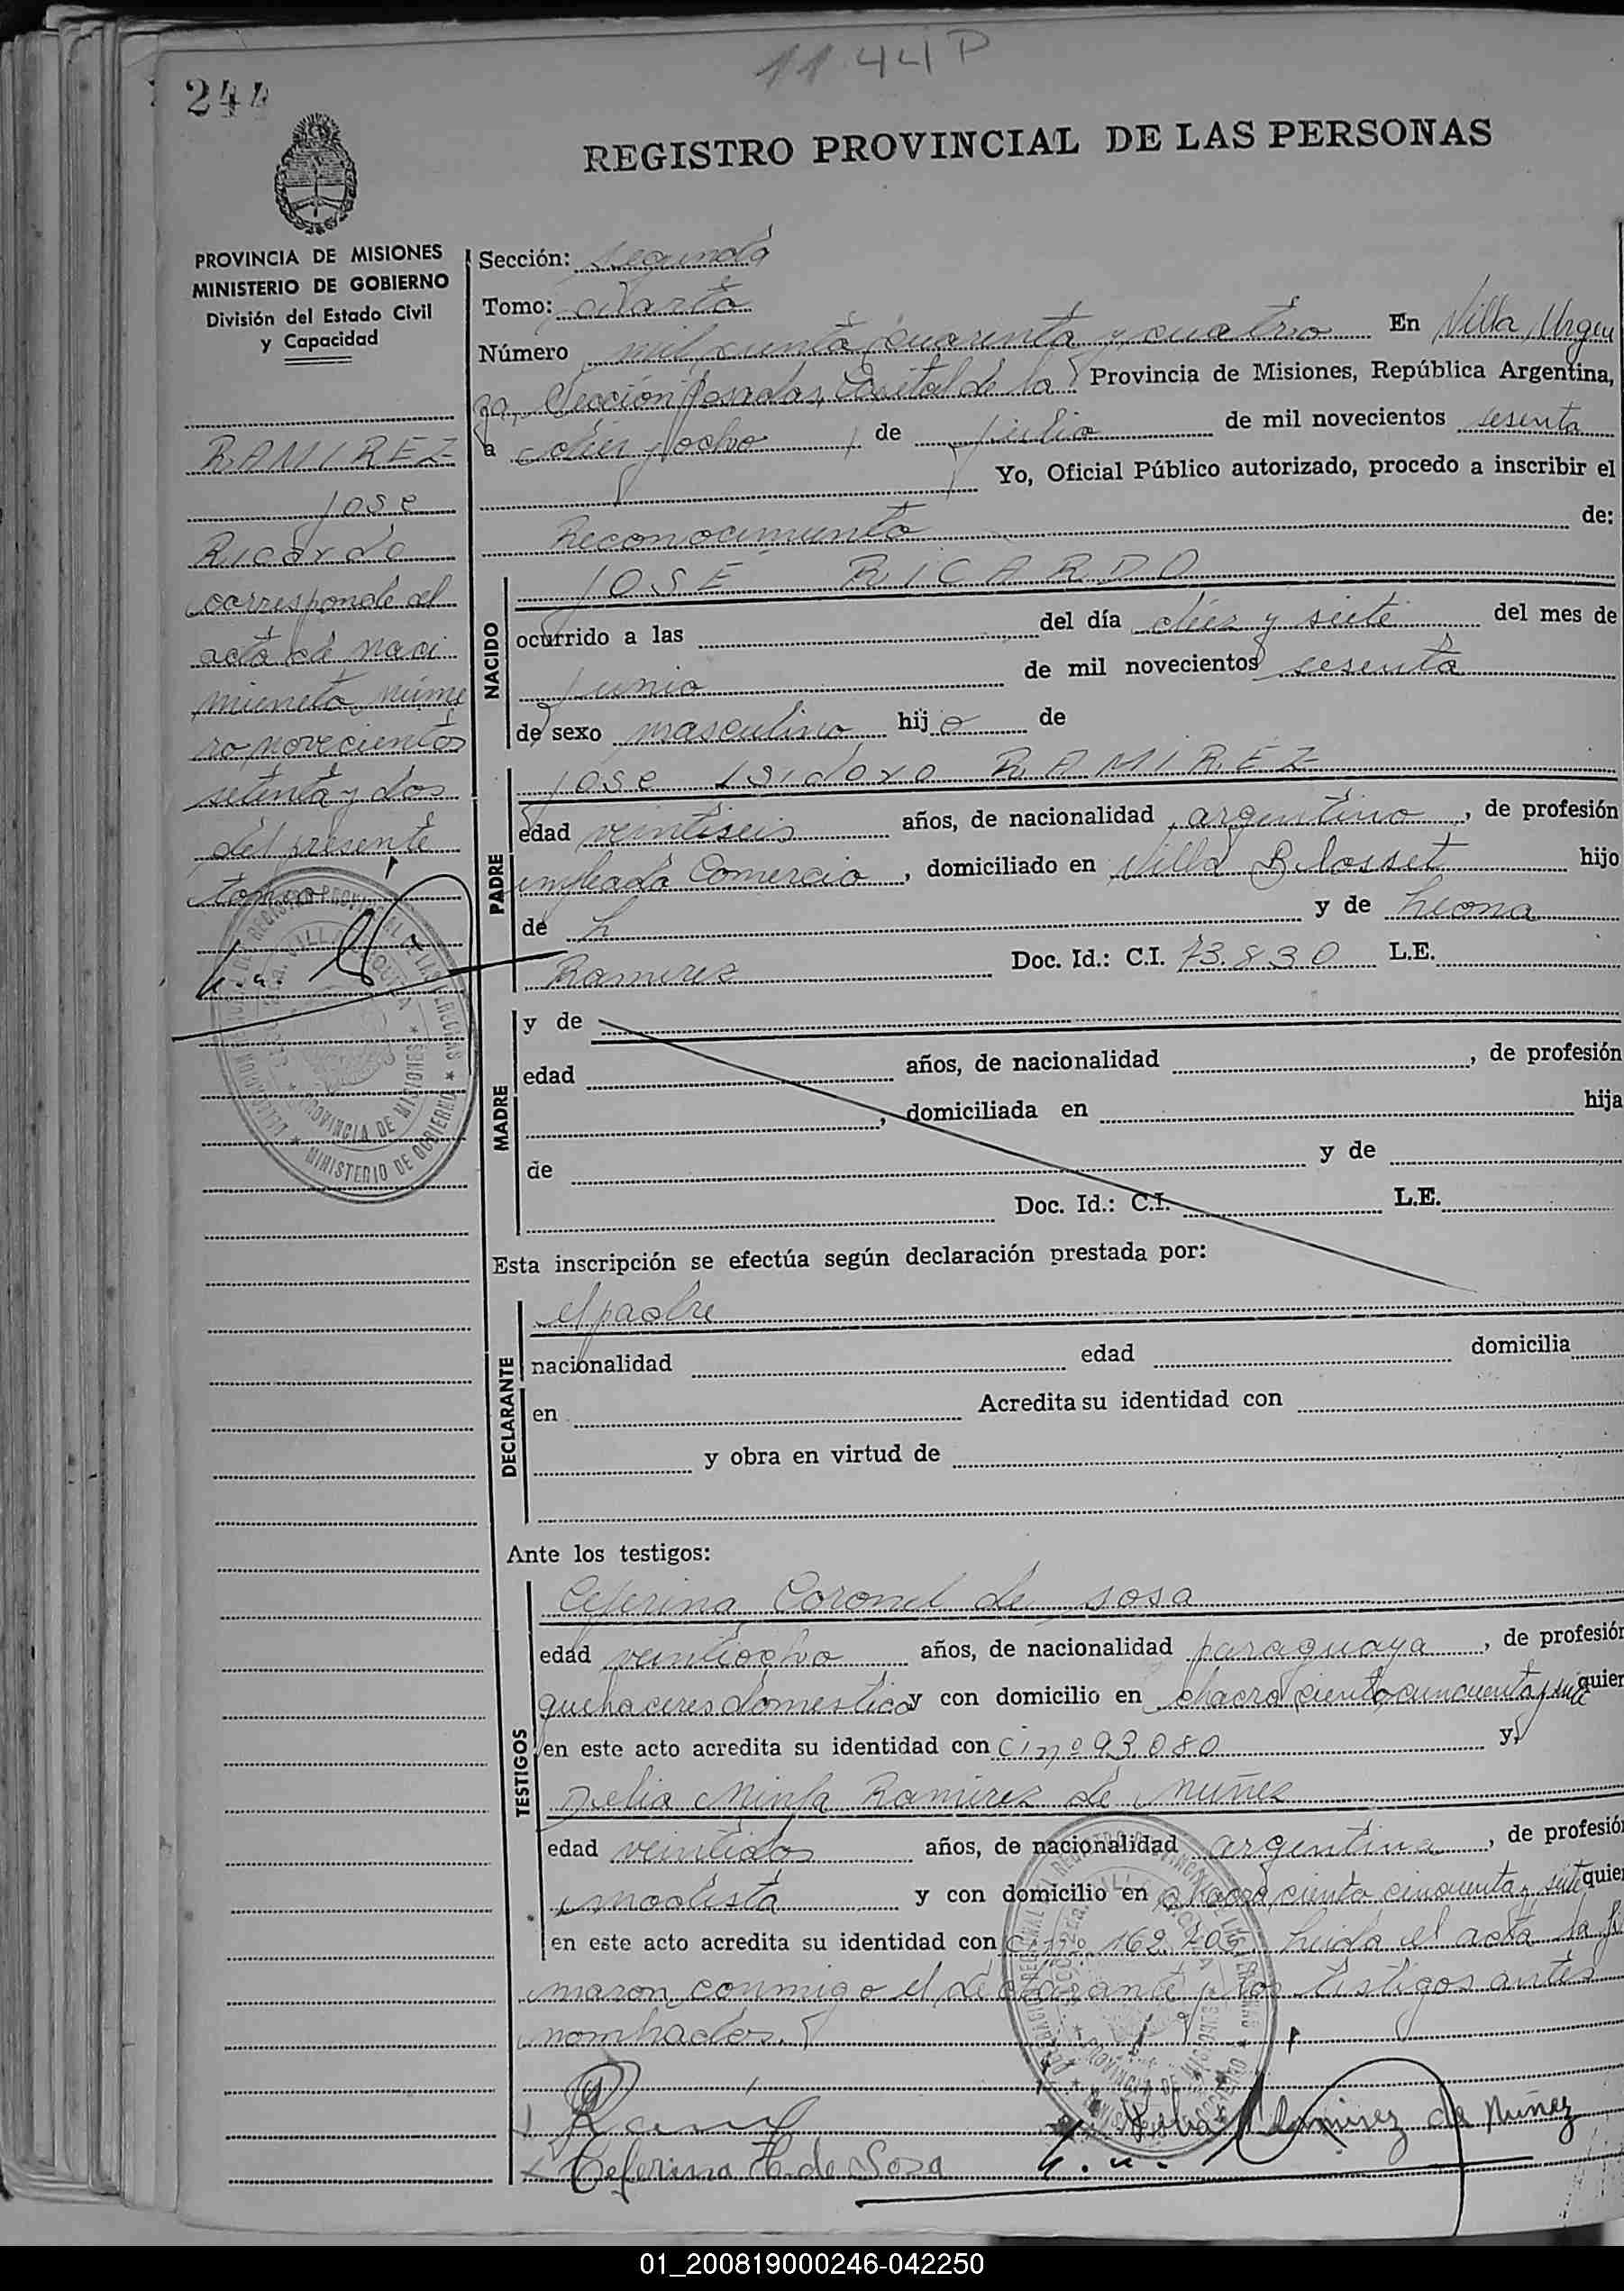 11 44 P
244
REGISTRO PROVINCIAL DE LAS PERSONAS
PROVINCIA DE MISIONES
MINISTERIO DE GOBIERNO
División del Estado Civil
y Capacidad
RAMIREZ
Jose
Ricardo
corresponde al
acta de naci
mineto núme
ro novecientos
setenta y dos
del presente
tomo.
Sección: segunda
Tomo: cuarto
Número mil ciento cuarenta y cuatro En Villa Urqui
za, Sección Posadas, Capital de la Provincia de Misiones, República Argentina,
a diez y ocho de julio de mil novecientos sesenta
Yo, Oficial Público autorizado, procedo a inscribir el
Reconocimiento de:
NACIDO
JOSE RICARDO
ocurrido a las del día diez y siete del mes de
junio de mil novecientos sesenta
de sexo masculino hijo de
PADRE
Jose Isidoro RAMIREZ
edad veintiseis años, de nacionalidad argentino, de profesión
empleado Comercio, domiciliado en Villa Blosset hijo
de y de Leona
Ramirez Doc. Id.: C.I. 73.830 L.E.
MADRE
y de
edad años, de nacionalidad , de profesión
, domiciliada en hija
de y de
Doc. Id.: C.I. L.E.
Esta inscripción se efectúa según declaración prestada por:
DECLARANTE
el padre
nacionalidad edad domicilia
en Acredita su identidad con
y obra en virtud de
Ante los testigos:
TESTIGOS
Ceferina Coronel de Sosa
edad veintiocho años, de nacionalidad paraguaya, de profesión
quehaceres domestico y con domicilio en chacra ciento cincuenta y siete quien
en este acto acredita su identidad con C i nº 93.080 y
Delia Mirta Ramirez de Nuñez
edad veintidos años, de nacionalidad argentina, de profesión
modista y con domicilio en chacra ciento cincuenta y siete quien
en este acto acredita su identidad con Leida el acta la fi
maron conmigo el declarante y los testigos antes
nombrados.
Delia Ramirez de Nuñez
Ceferina de Sosa
01_200819000246-042250